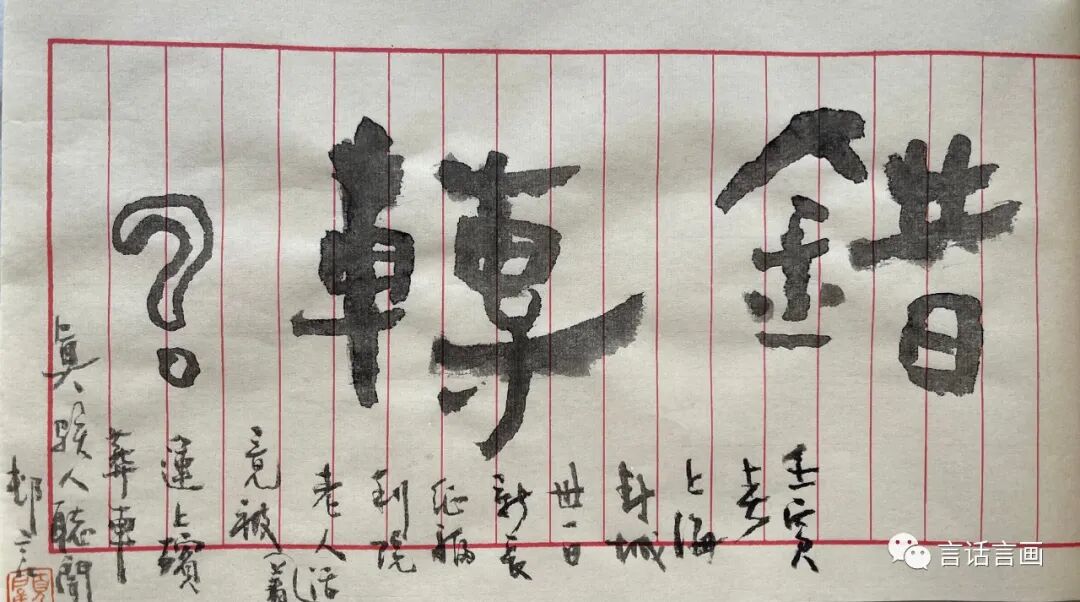 錯轉?
壬寅
春
上海
封城
卅一日
新長
征福
利院
老人活
竟被
運上殯
葬車
真駭人聽聞
言话言画